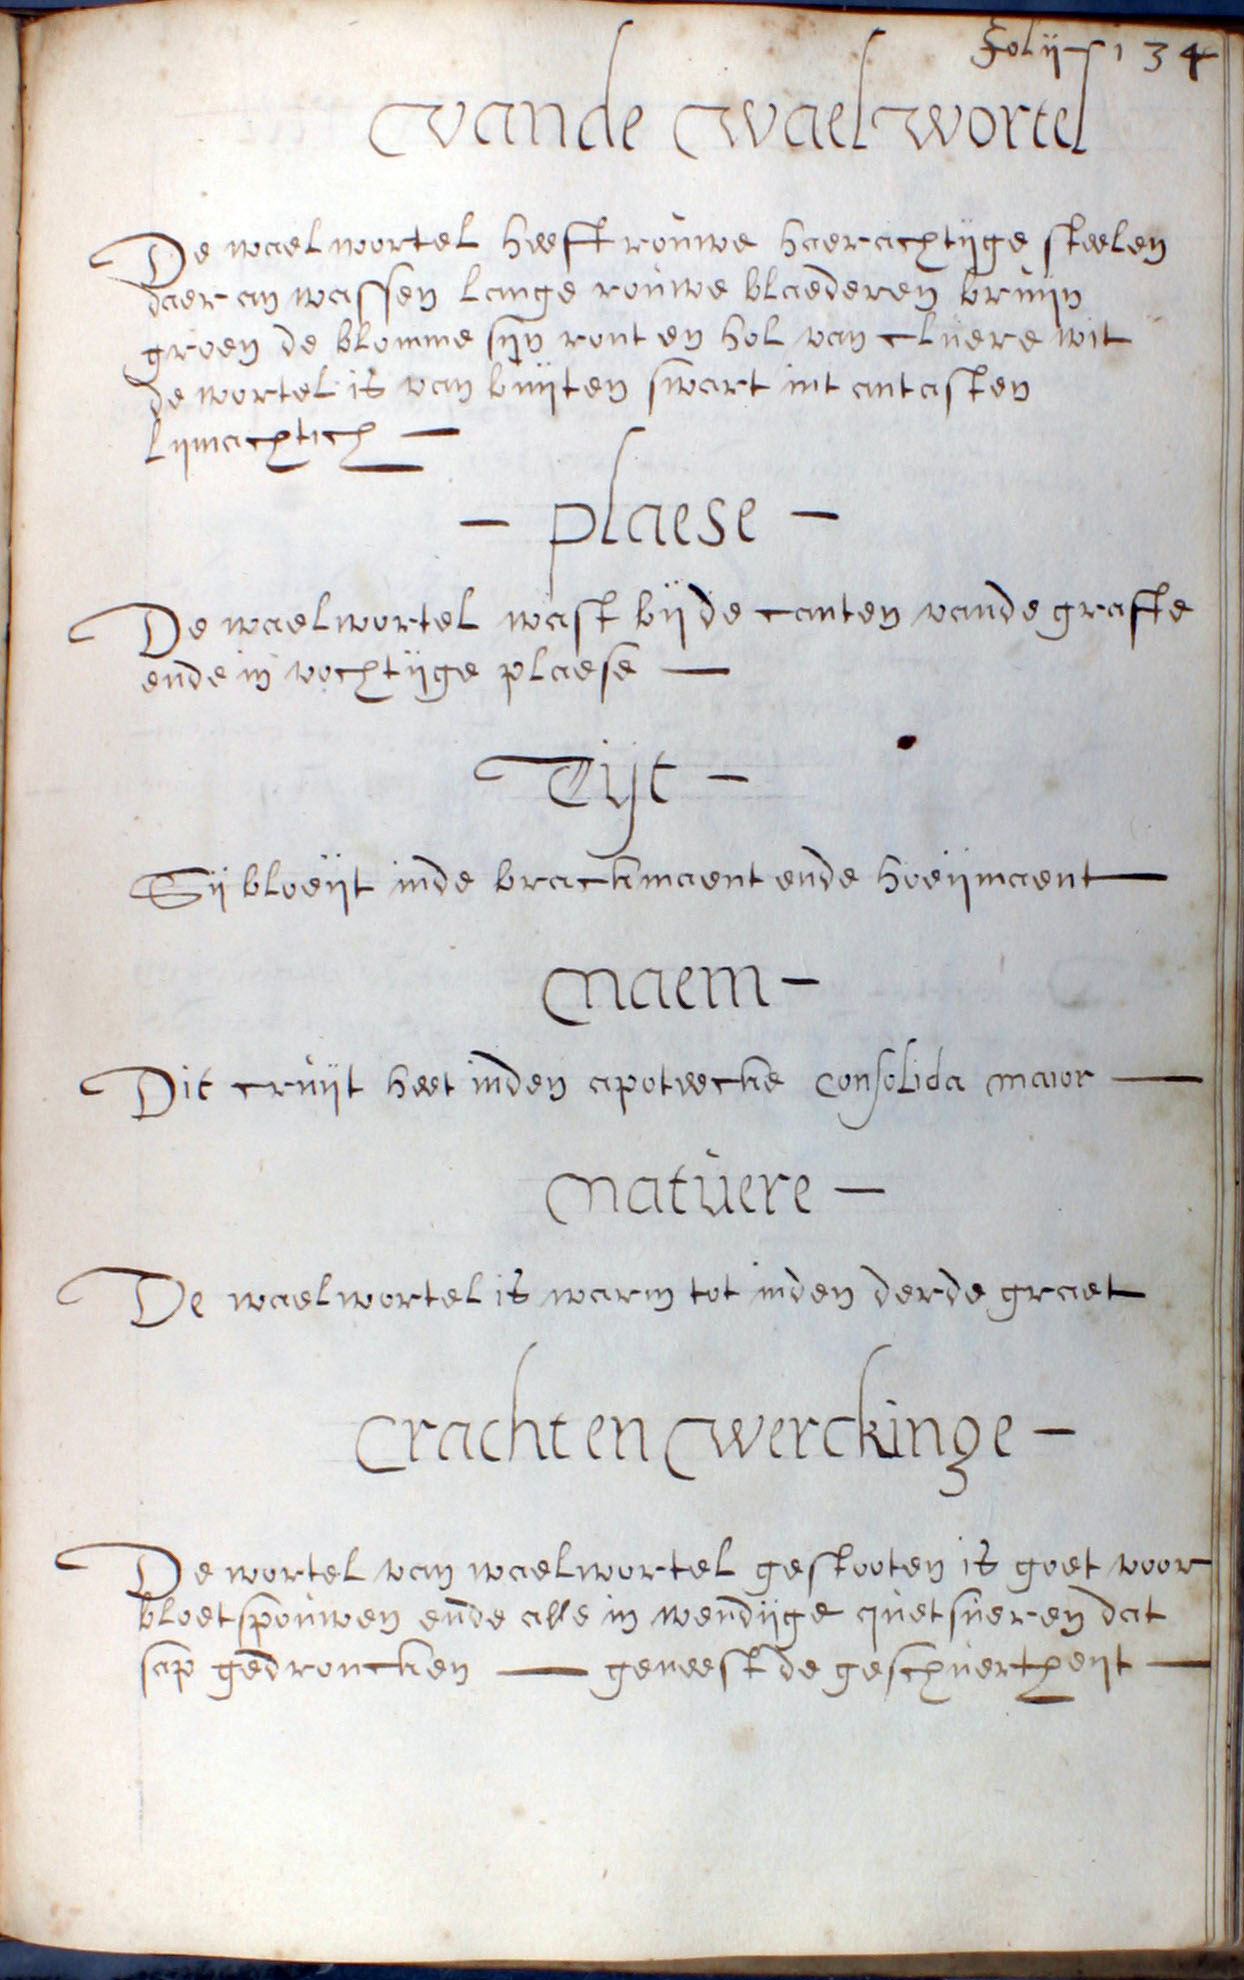 Folij 134
vande waelwortel
De waelwortel heeft rouwe haerachtijge steelen
daer an wassen lange rouwe blaederen bruijn
groen de blomme sijn ront en hol van cluere wit
de wortel is van buijten swart int antasten
lijmachtich —
— plaese —
De waelwortel wast bij de canten vande grafte
ende in vochtijge plaese —
Tijt —
Sij bloeijt inde brackmaent ende hoeijmaent —
naem —
Dit cruijt heet inden apoteecke consolida maior —
natuere —
De waelwortel is warm tot inden derde graet
cracht en werckinge —
De wortel van waelwortel gestooten is goet voor
bloetspouwen ende alle in wendijge quetsueren dat
sap gedroncken — geneest de geschuertheijt —